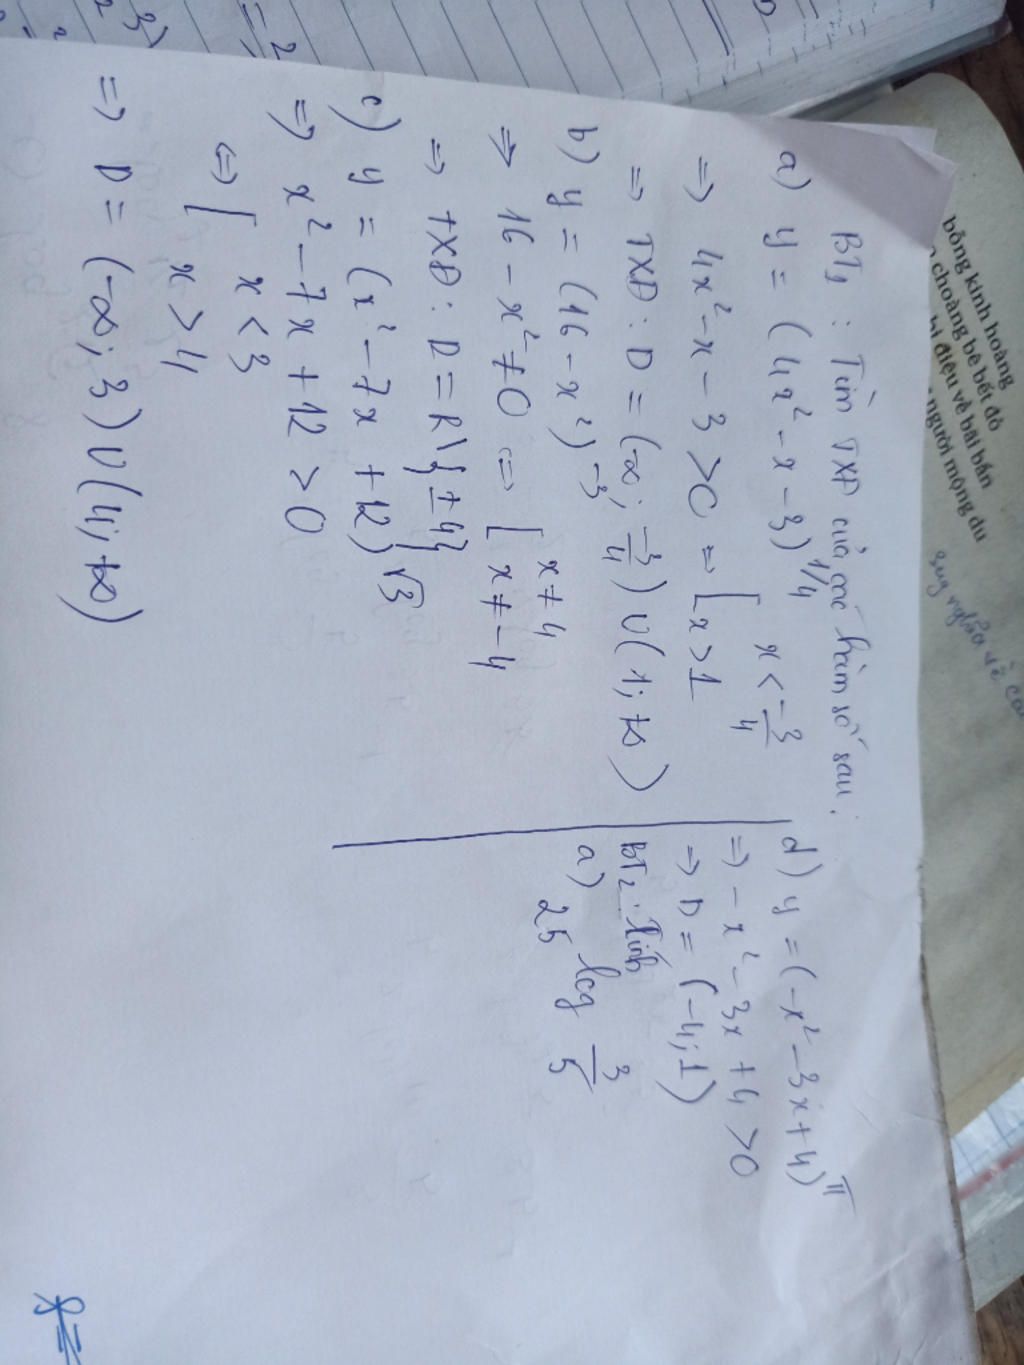 BT1 : Tìm TXĐ của các hàm số sau:
a) y = (4x² - x - 3)^1/4
=> 4x² - x - 3 > 0 => [ x < -3/4
x > 1
=> TXĐ : D = (-∞; -3/4) ∪ (1; +∞)
b) y = (16 - x²)^-3
=> 16 - x² ≠ 0 <=> [ x ≠ 4
x ≠ -4
=> TXĐ : D = R \ {±4}
c) y = (x² - 7x + 12)^√3
=> x² - 7x + 12 > 0
<=> [ x < 3
x > 4
=> D = (-∞; 3) ∪ (4; +∞)
d) y = (-x² - 3x + 4)^π
=> -x² - 3x + 4 > 0
=> D = (-4; 1)
BT2 : Tính
a) 25 log 3/5
bỗng kinh hoàng
choàng bê bết đỏ
bị điệu về bãi bắn
người mộng du